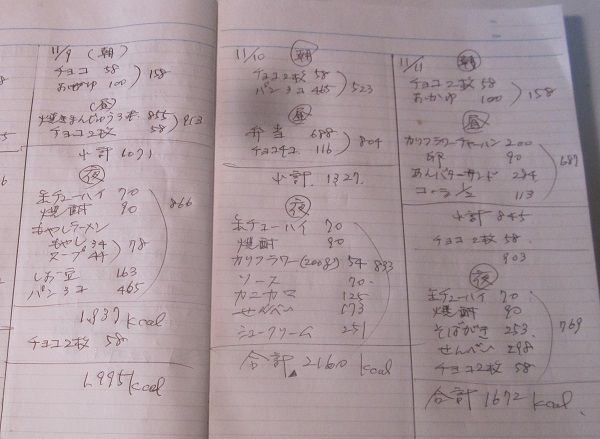 11/9 (朝)
チョコ 58
おかゆ 100
158
(昼)
焼きまんじゅう3本 855
チョコ2枚 58
913
小計 1071
夜
缶チューハイ 70
焼酎 90
もやしラーメン
もやし 34
スープ 44
78
しお豆 163
パン3コ 465
866
1,937 kcal
チョコ2枚 58
1,995 kcal
11/10 朝
チョコ2枚 58
パン3コ 465
523
昼
弁当 688
チョコ4コ 116
804
小計 1327
夜
缶チューハイ 70
焼酎 90
カリフラワー(200g) 54
ソース 70
カニカマ 125
せんべい 173
シュークリーム 251
833
合計 2160 kcal
11/11 朝
チョコ2枚 58
おかゆ 100
158
昼
カリフラワーチャーハン 200
卵 90
あんバターサンド 284
コーラ1/2 113
687
小計 845
チョコ2枚 58
903
夜
缶チューハイ 70
焼酎 90
そばがき 253
せんべい 298
チョコ2枚 58
769
合計 1672 kcal